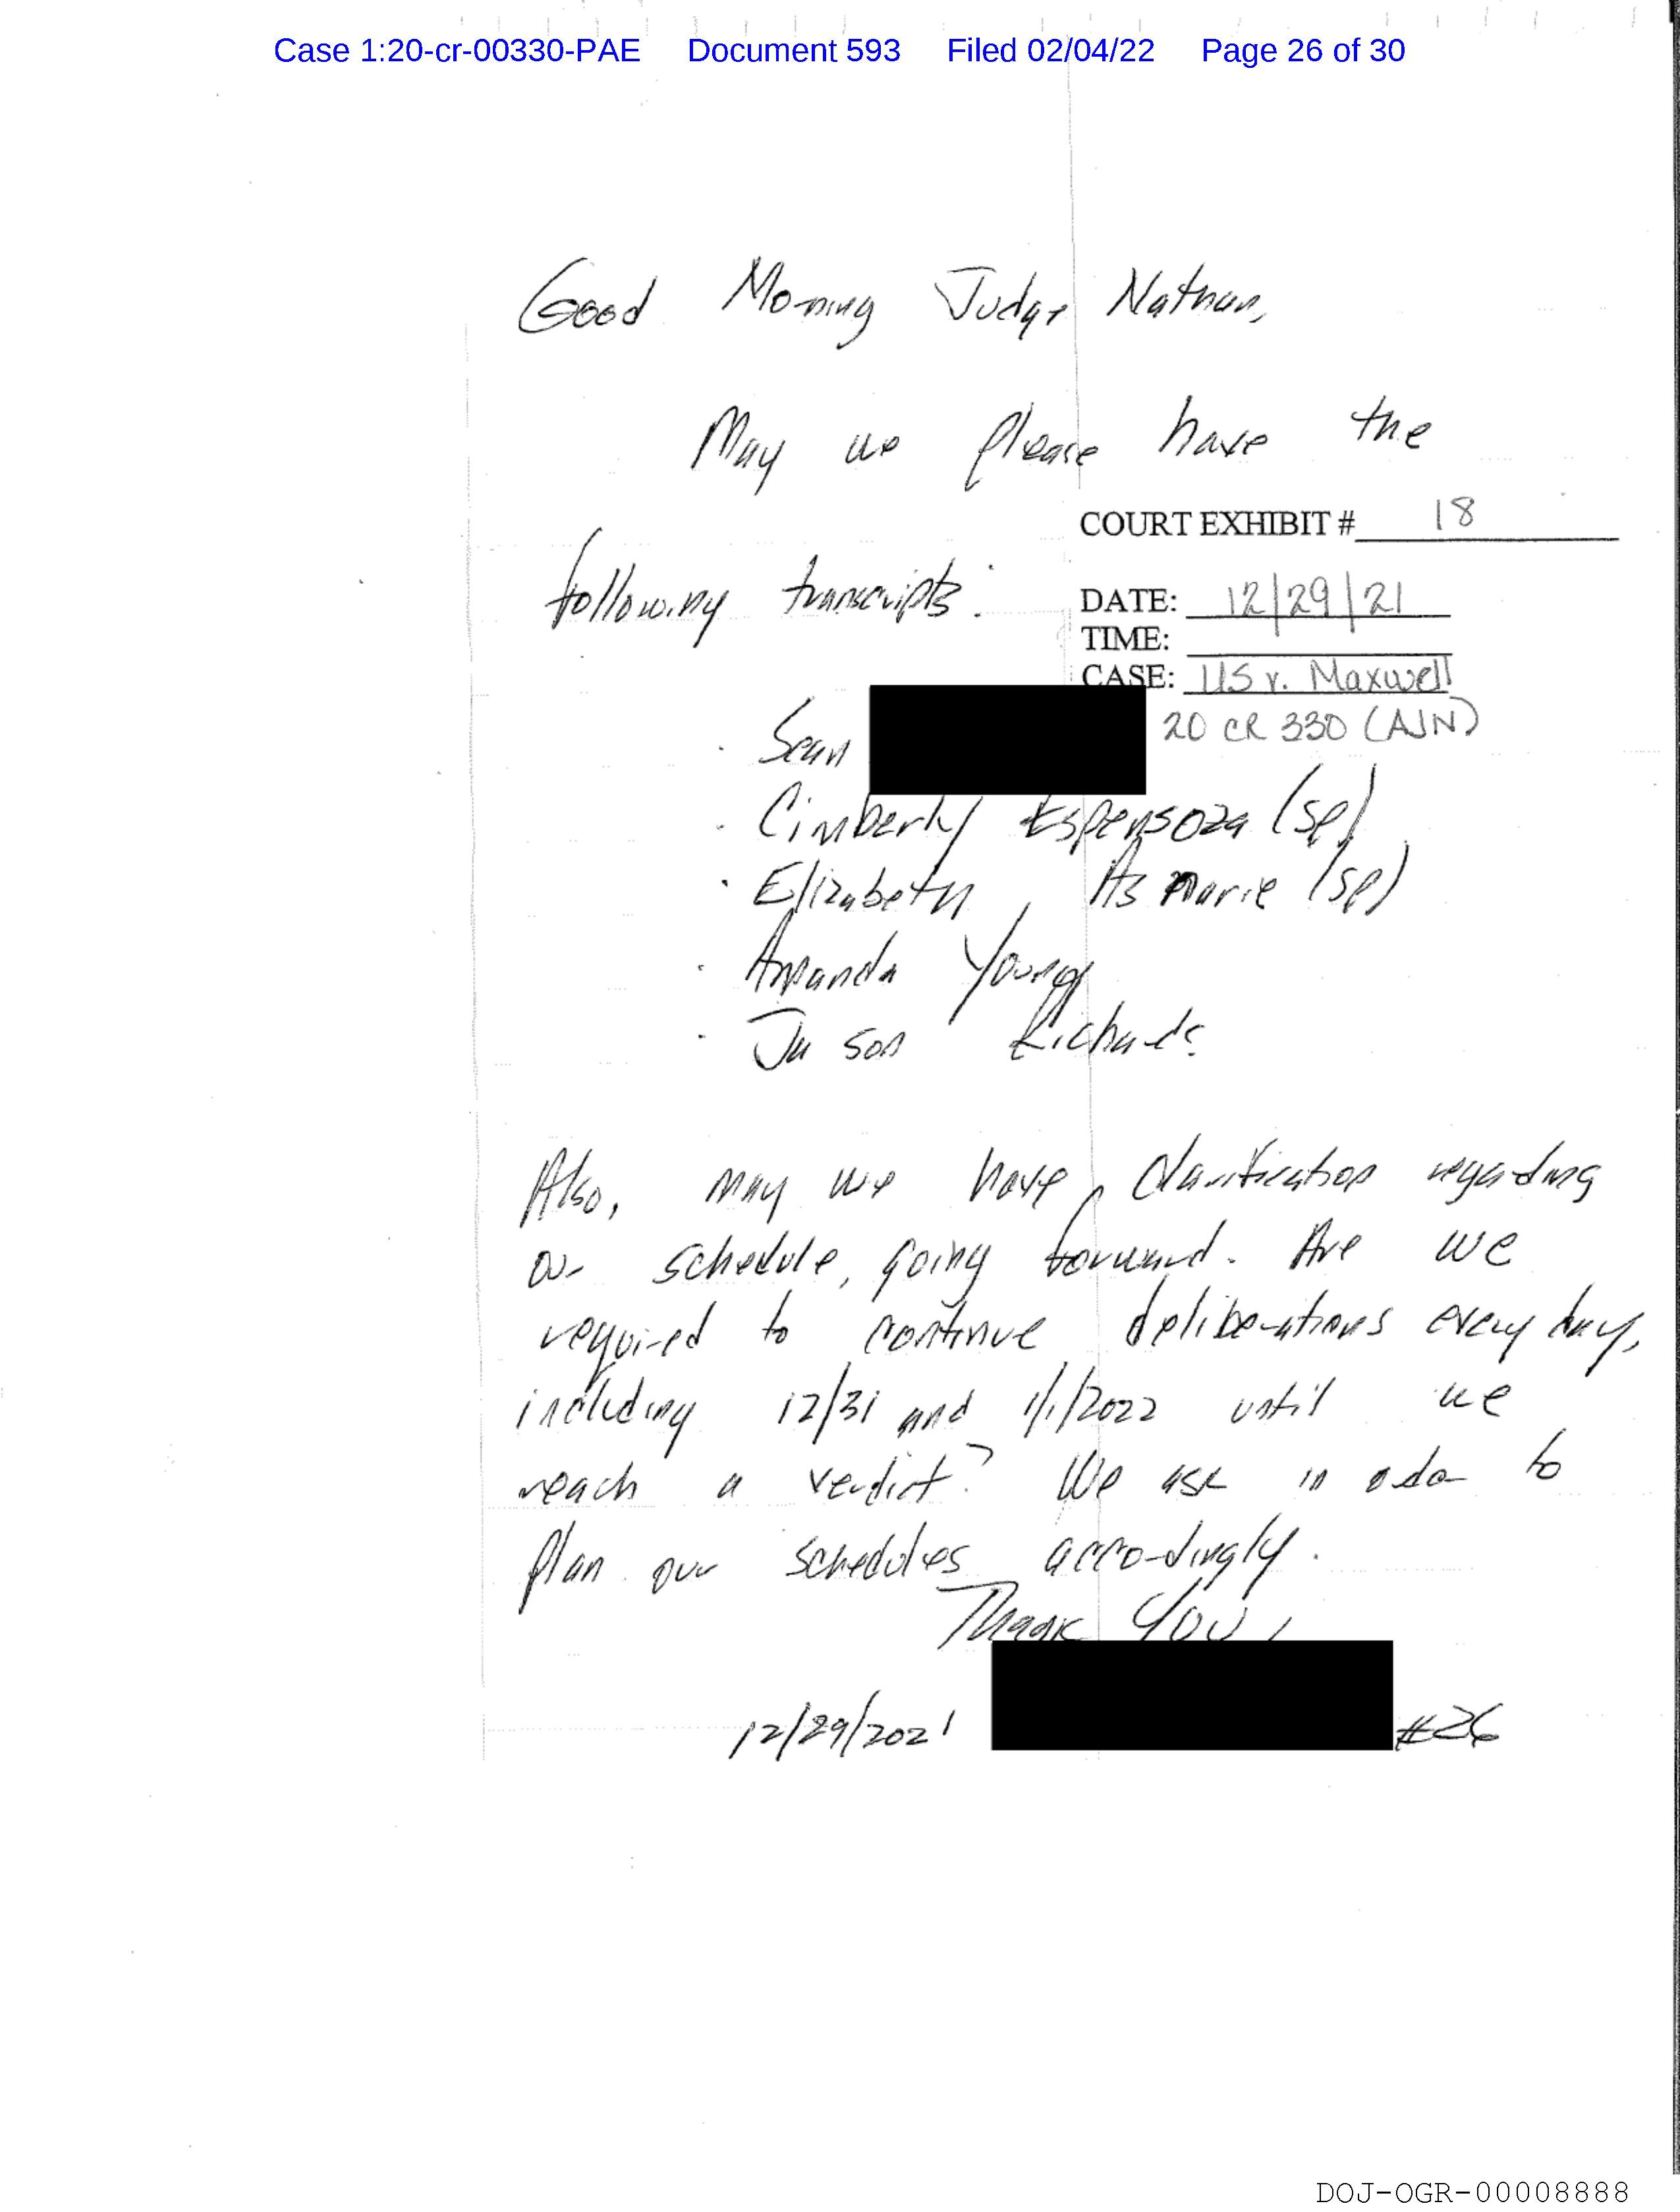 Case 1:20-cr-00330-PAE Document 593 Filed 02/04/22 Page 26 of 30
Good Morning Judge Nathan,
May we please have the
COURT EXHIBIT # 18
following transcripts:
DATE: 12/29/21
TIME:
CASE: US v. Maxwell
20 CR 330 (AJN)
· Sean
· Cimberly Espensoza (sp)
· Elizabeth, Asmarie (sp)
· Amanda Young
· Jason Richards
Also, may we have clarification regarding
our schedule, going forward. Are we
required to continue deliberations every day,
including 12/31 and 1/1/2022 until we
reach a verdict? We ask in order to
plan our schedules accordingly.
Thank You,
12/29/2021 #26
DOJ-OGR-00008888